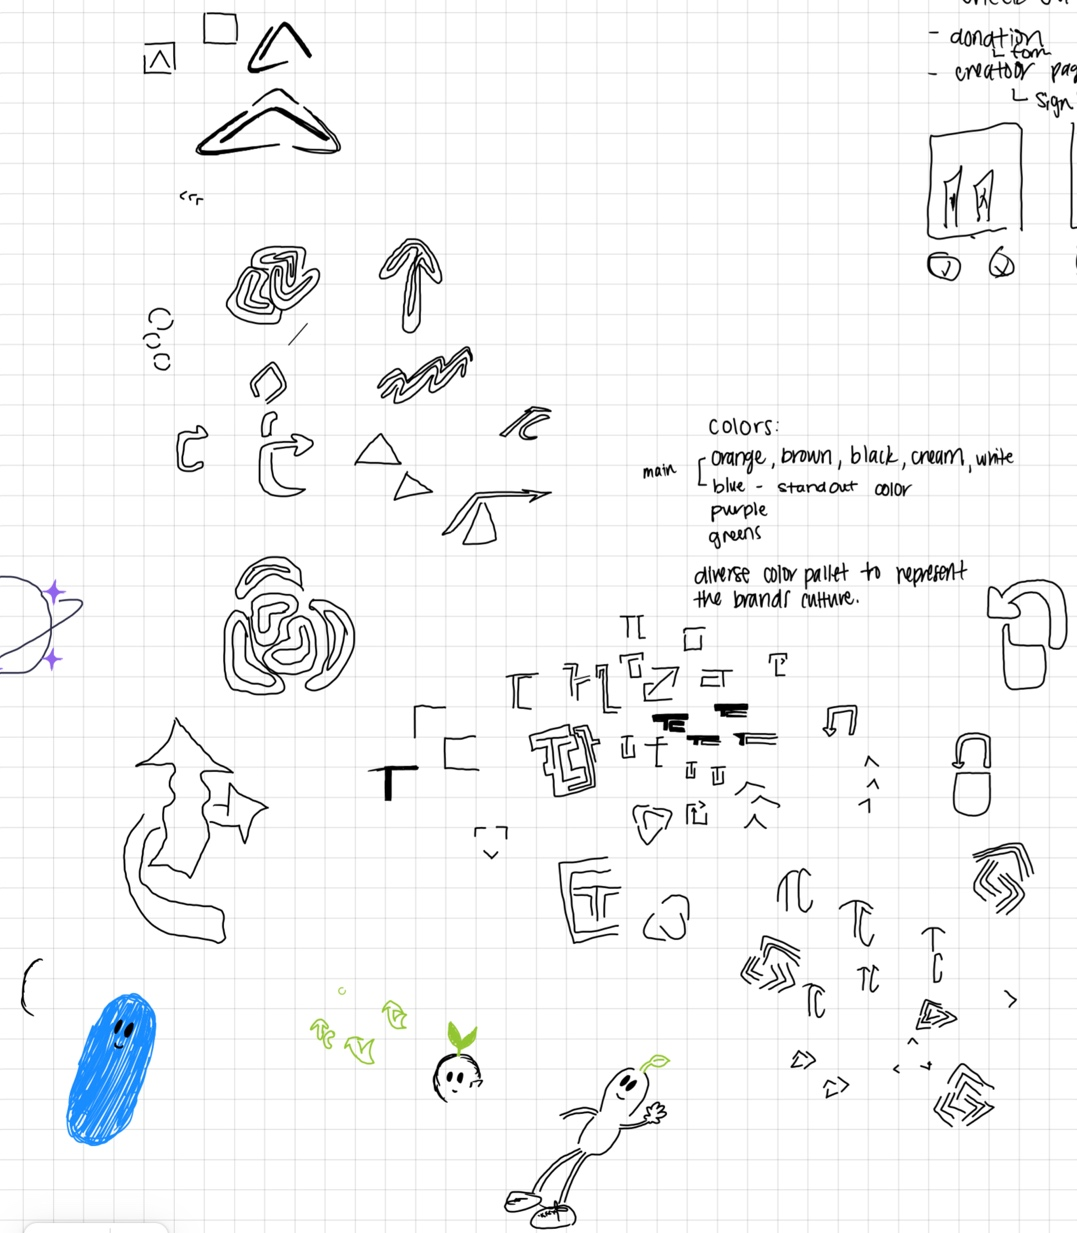 - donation
└ form
- creator pag
└ sign
colors:
main
orange, brown, black, cream, white
blue - standout color
purple
greens
diverse color pallet to represent
the brands culture.
TC
TC
TC
TC
T
C